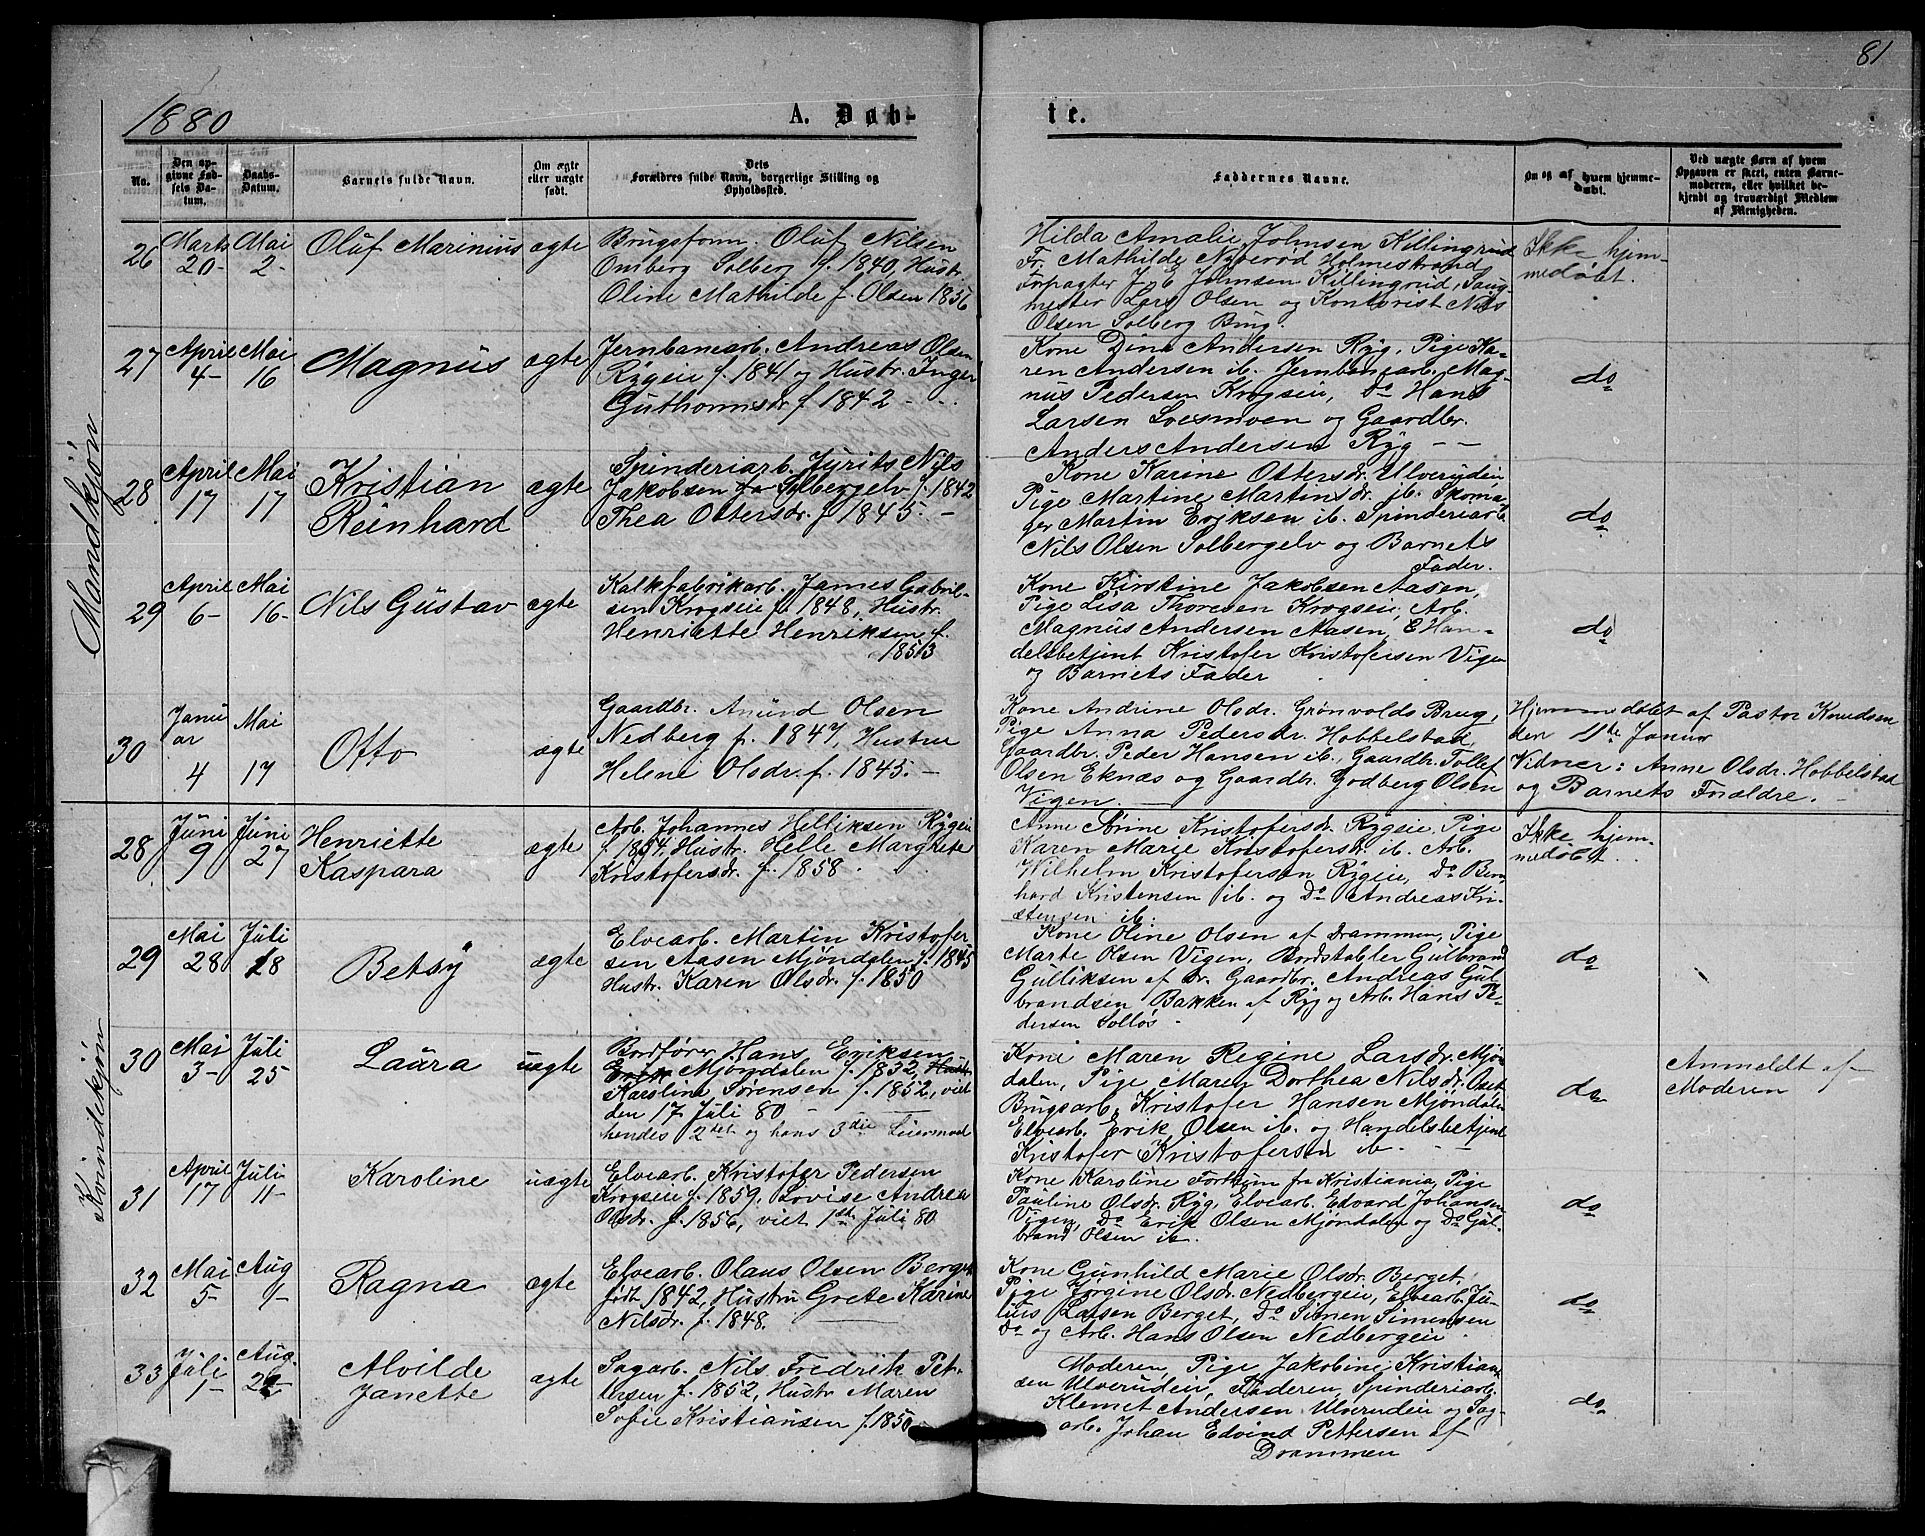 81
1880
A. Døb-
te.
No.
Den op-
givne Fød-
sels Da-
tum.
Daabs-
Datum.
Barnets fulde Navn.
Om ægte
eller uægte
født.
Dets
Forældres fulde Navn, borgerlige Stilling og
Opholdssted.
Faddernes Navne.
Om og af hvem hjemme-
døbt.
Ved uægte Børn af hvem
Opgaven er skeet, enten Barne-
moderen, eller hvilket be-
kjendt og troværdigt Medlem
af Menigheden.
Mandkjön
26
Marts
20-
Mai
2-
Oluf Marinius
ægte
Brugsform. Oluf Nilsen
Omberg Solberg f. 1840, Hustr.
Oline Mathilde f. Olsen 1856
Hilda Amalie Johnsen Killingrud
Fr. Mathilde Nyberöd Holmestrand,
Forpagter J. E. Johnsen Killingrud, Saug-
mester Lars Olsen og Kontorist Nils
Olsen Solberg Brug.
Ikke hjem-
medöbt.
27
April
4-
Mai
16
Magnus
ægte
Jernbanearb. Andreas Olsen
Rygeie f. 1841 og Hustr. Inger
Guthormsdr. f. 1842 - -
Kone Dina Andersen Ryg, Pige Ka-
ren Andersen ib. Jernbanearb. Mag-
nus Pedersen Krogseie, Do Hans
Larsen Loesmoen og Gaardbr.
Anders Andersen Ryg - -
do
28
April
17
Mai
17
Kristian
Reinhard
ægte
Spinderiarb. Jurits Nils
Jakobsen Solbergelv f. 1842
Thea Ottersdr. f 1845. -
Kone Karine Ottersdr. Ulverudeie
Pige Martine Martinsdr. ib. Skoma-
ger Martin Eriksen ib. Spinderiarb.
Nils Olsen Solbergelv og Barnets
Fader.
do
29
April
6-
Mai
16-
Nils Gustav
ægte
Kalkfabrikarb. James Gabriel-
sen Krogseie f. 1848, Hustr.
Henriette Henriksen f.
1853
Kone Kirstine Jakobsen Aasen,
Pige Lisa Thoresen Krogseie, Arb.
Magnus Andersen Aasen, Han-
delsbetjent Kristofer Kristofersen Vigen
og Barnets Fader
do
30
Janu
ar
4
Mai
17
Otto
ægte
Gaardbr. Amund Olsen
Nedberg f. 1847, Hustru
Helene Olsdr. f. 1845. -
Kone Andrine Olsdr. Grönvolds Brug,
Pige Anna Pedersdr. Hobbelstad,
Gaardbr. Peder Hansen ib., Gaardbr. Tollef
Olsen Eknæs og Gaardbr. Godberg Olsen
Vigen.
Hjemmedöbt af Pastor Knudsen
den 11te Januar
Vidner: Anne Olsdr. Hobbelstad
og Barnets Forældre. -
Kvindekjön
28
Juni
9
Juni
27
Henriette
Kaspara
ægte
Arb. Johannes Helliksen Rygeie
f. 1854, Hustr. Helle Margrete
Kristofersdr. f. 1858.
Anne Sörine Kristofersdr. Rygseie, Pige
Karen Marie Kristofersdr. ib. Arb.
Wilhelm Kristofersen Rygeie, Do Bern
hard Kristensen ib. og Do Andreas Kri-
stensen ib.
Ikke hjem-
medöbt.
29
Mai
28
Juli
18
Betsy
ægte
Elvearb. Martin Kristofer
sen Aasen Mjöndalen f. 1845
Hustr. Karen Olsdr. f. 1850
Kone Oline Olsen af Drammen, Pige
Marte Olsen Vigen, Bordstabler Gulbrand
Gulliksen af Dr. Gaardbr. Andreas Gul-
brandsen Bakken af Ryg og Arb. Hans Pe-
dersen Solløs -
do
30
Mai
3-
Juli
25
Laura
uægte
Bordfører Hans Eriksen
Mjöndalen f. 1832, Hustr.
Karoline Sørensen f. 1852, viet
den 17 Juli 80 -
hendes 2det og hans 3die Leiermaal
Kone Maren Regine Larsdr. Mjön-
dalen, Pige Maren Dorthea Nilsdr. Oset
Brugsarb. Kristofer Hansen Mjöndalen
Elvearb. Erik Olsen ib. og Handelsbetjent
Kristofer Kristofersen ib. - -
do
Anmeldt af
Moderen
31
April
17
Juli
11-
Karoline
uægte
Elvearb. Kristofer Pedersen
Krogseie f. 1859. Lovise Andrea
Olsdr. f. 1856, viet 1ste Juli 80
Kone Karoline Forkum fra Kristiania, Pige
Pauline Olsdr. Ryg, Elvearb. Edvard Johansen
Vigen, Do Erik Olsen Mjöndalen og Do Gul-
brand Olsen ib.
do
32
Mai
5-
Aug
1-
Ragna
ægte
Elvearb. Olaus Olsen Berget
födt 1842, Hustru Grete Karine
Nilsdr. f. 1848.
Kone Gunhild Marie Olsdr. Berget,
Pige Jörgine Olsdr. Nedbergeie, Elvearb. Ju-
lius Larsen Berget, Do Simen Simensen
Do og Arb. Hans Olsen Nedbergeie
do
33
Juli
1-
Aug.
Alvilde
Janette
ægte
Sagarb. Nils Fredrik Pet-
tersen f. 1852, Hustr Maren
Sofie Kristiansen f. 1850
Moderen, Pige Jakobine Kristian
sen Ulverudeie, Faderen, Spinderiarb.
Klemet Andersen Ulverudeie og Sag-
arb. Johan Edvind Pettersen af
Drammen
do